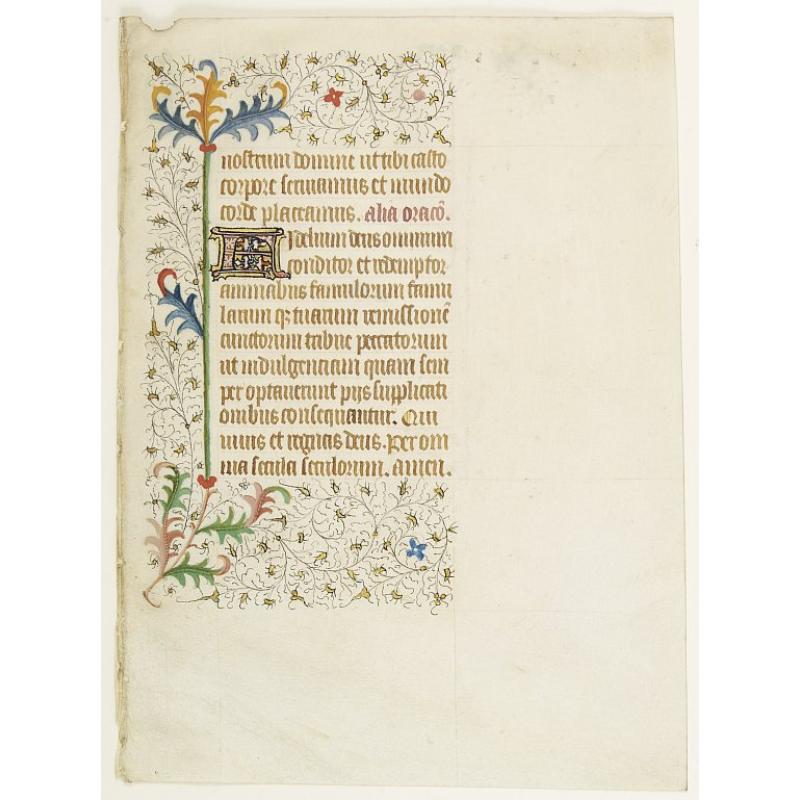 nostrum domine ut tibi casto
corpore seruiamus et mundo
corde placeamus. alia oracō.
Fidelium deus omnium
conditor et redemptor
animabus famulorum famu
larum qꝫ tuarum remissionē
cunctorum tribue peccatorum
ut indulgenciam quam sem
per optauerunt pijs supplicati
onibus consequantur. Qui
viuis et regnas deus. Per om
nia secula seculorum. amen.